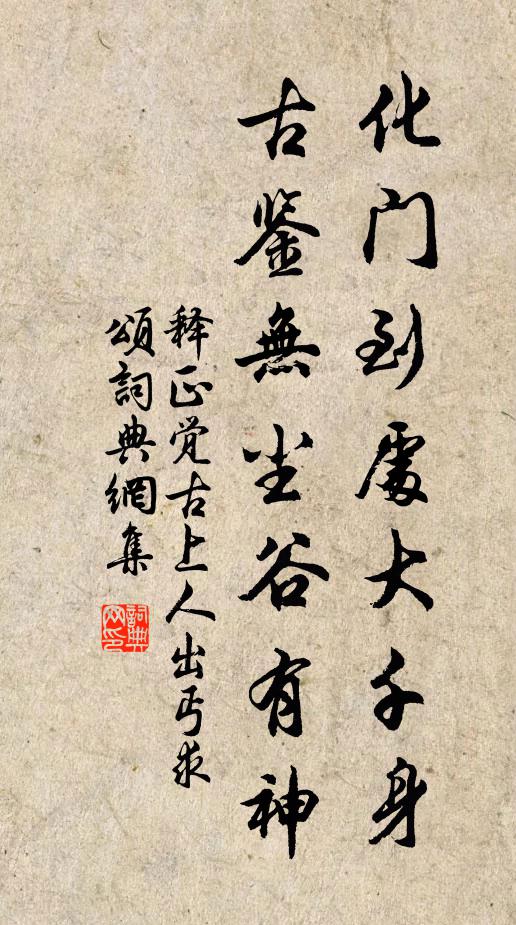 化门到處大千身
古鉴無尘谷有神
释正觉古上人出丐求
頌詞典網集
詞典网印